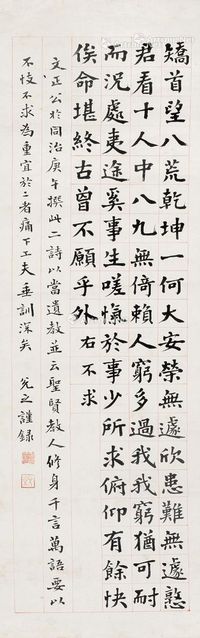 矯首望八荒乾坤一何大安榮無遽欣患難無遽憝
君看十人中八九無倚賴人窮多過我我窮猶可耐
而況處夷途奚事生嗟愾於事少所求俯仰有餘快
俟命堪終古曾不願乎外 右不求
文正公於同治庚午撰此二詩以當遺教並云聖賢教人修身千言萬語要以
不忮不求為重宜於二者痛下工夫垂訓深矣 允之謹錄